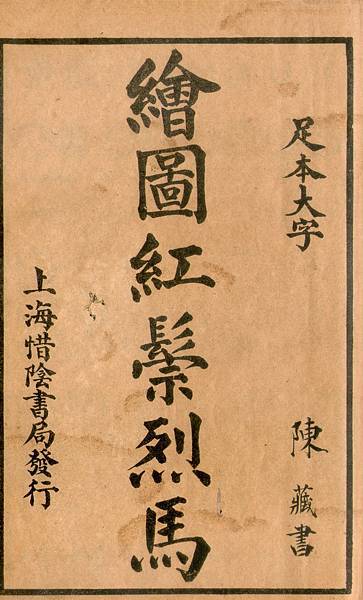 足本大字
陳藏書
繪圖紅鬃烈馬
上海惜陰書局發行